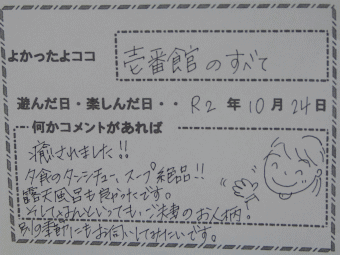 よかったよココ
壱番館のすべて
遊んだ日・楽しんだ日・・ R2 年 10 月 24 日
何かコメントがあれば
癒されました!!
夕食のタンシチュー、スープ絶品!!
露天風呂も良かったです。
そしてなんといっても、ご夫妻のお人柄。
別の季節にもお伺いしてみたいです。